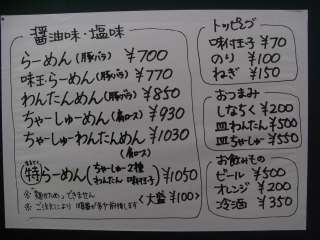 醤油味・塩味
らーめん(豚バラ) ¥700
味玉らーめん(豚バラ) ¥770
わんたんめん(豚バラ) ¥850
ちゃーしゅーめん(肩ロース) ¥930
ちゃーしゅーわんたんめん ¥1030
(肩ロース)
特らーめん(ちゃーしゅー2種 わんたん 味付玉子) ¥1050
できません
※ご注文により 順番が多少前後します
〈大盛 ¥100〉
トッピング
味付玉子 ¥70
のり ¥100
ねぎ ¥150
おつまみ
しなちく ¥200
皿わんたん ¥500
皿ちゃーしゅー ¥550
お飲みもの
ビール ¥500
オレンジ ¥200
冷酒 ¥350